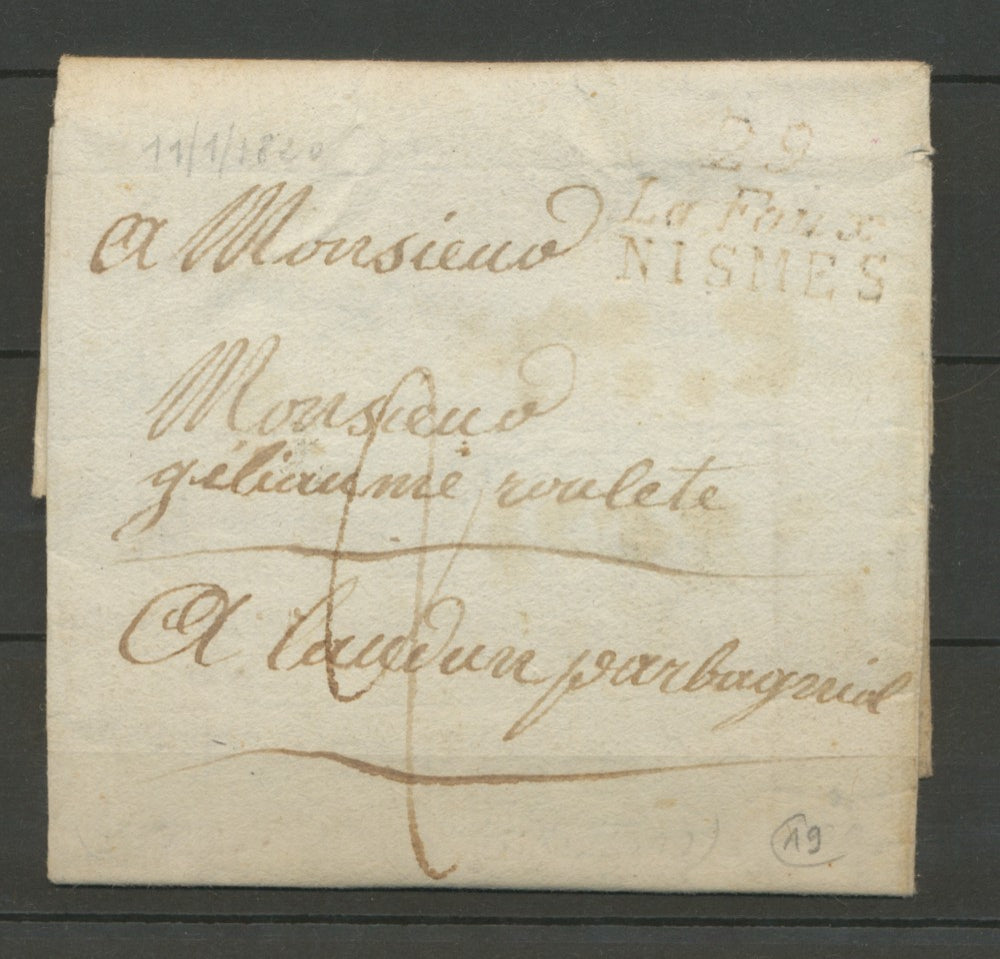 11/1/1820
29
La Foux
NISMES
A Monsieur
Monsieur
géliaume roulete
A laudun par bagniol
19